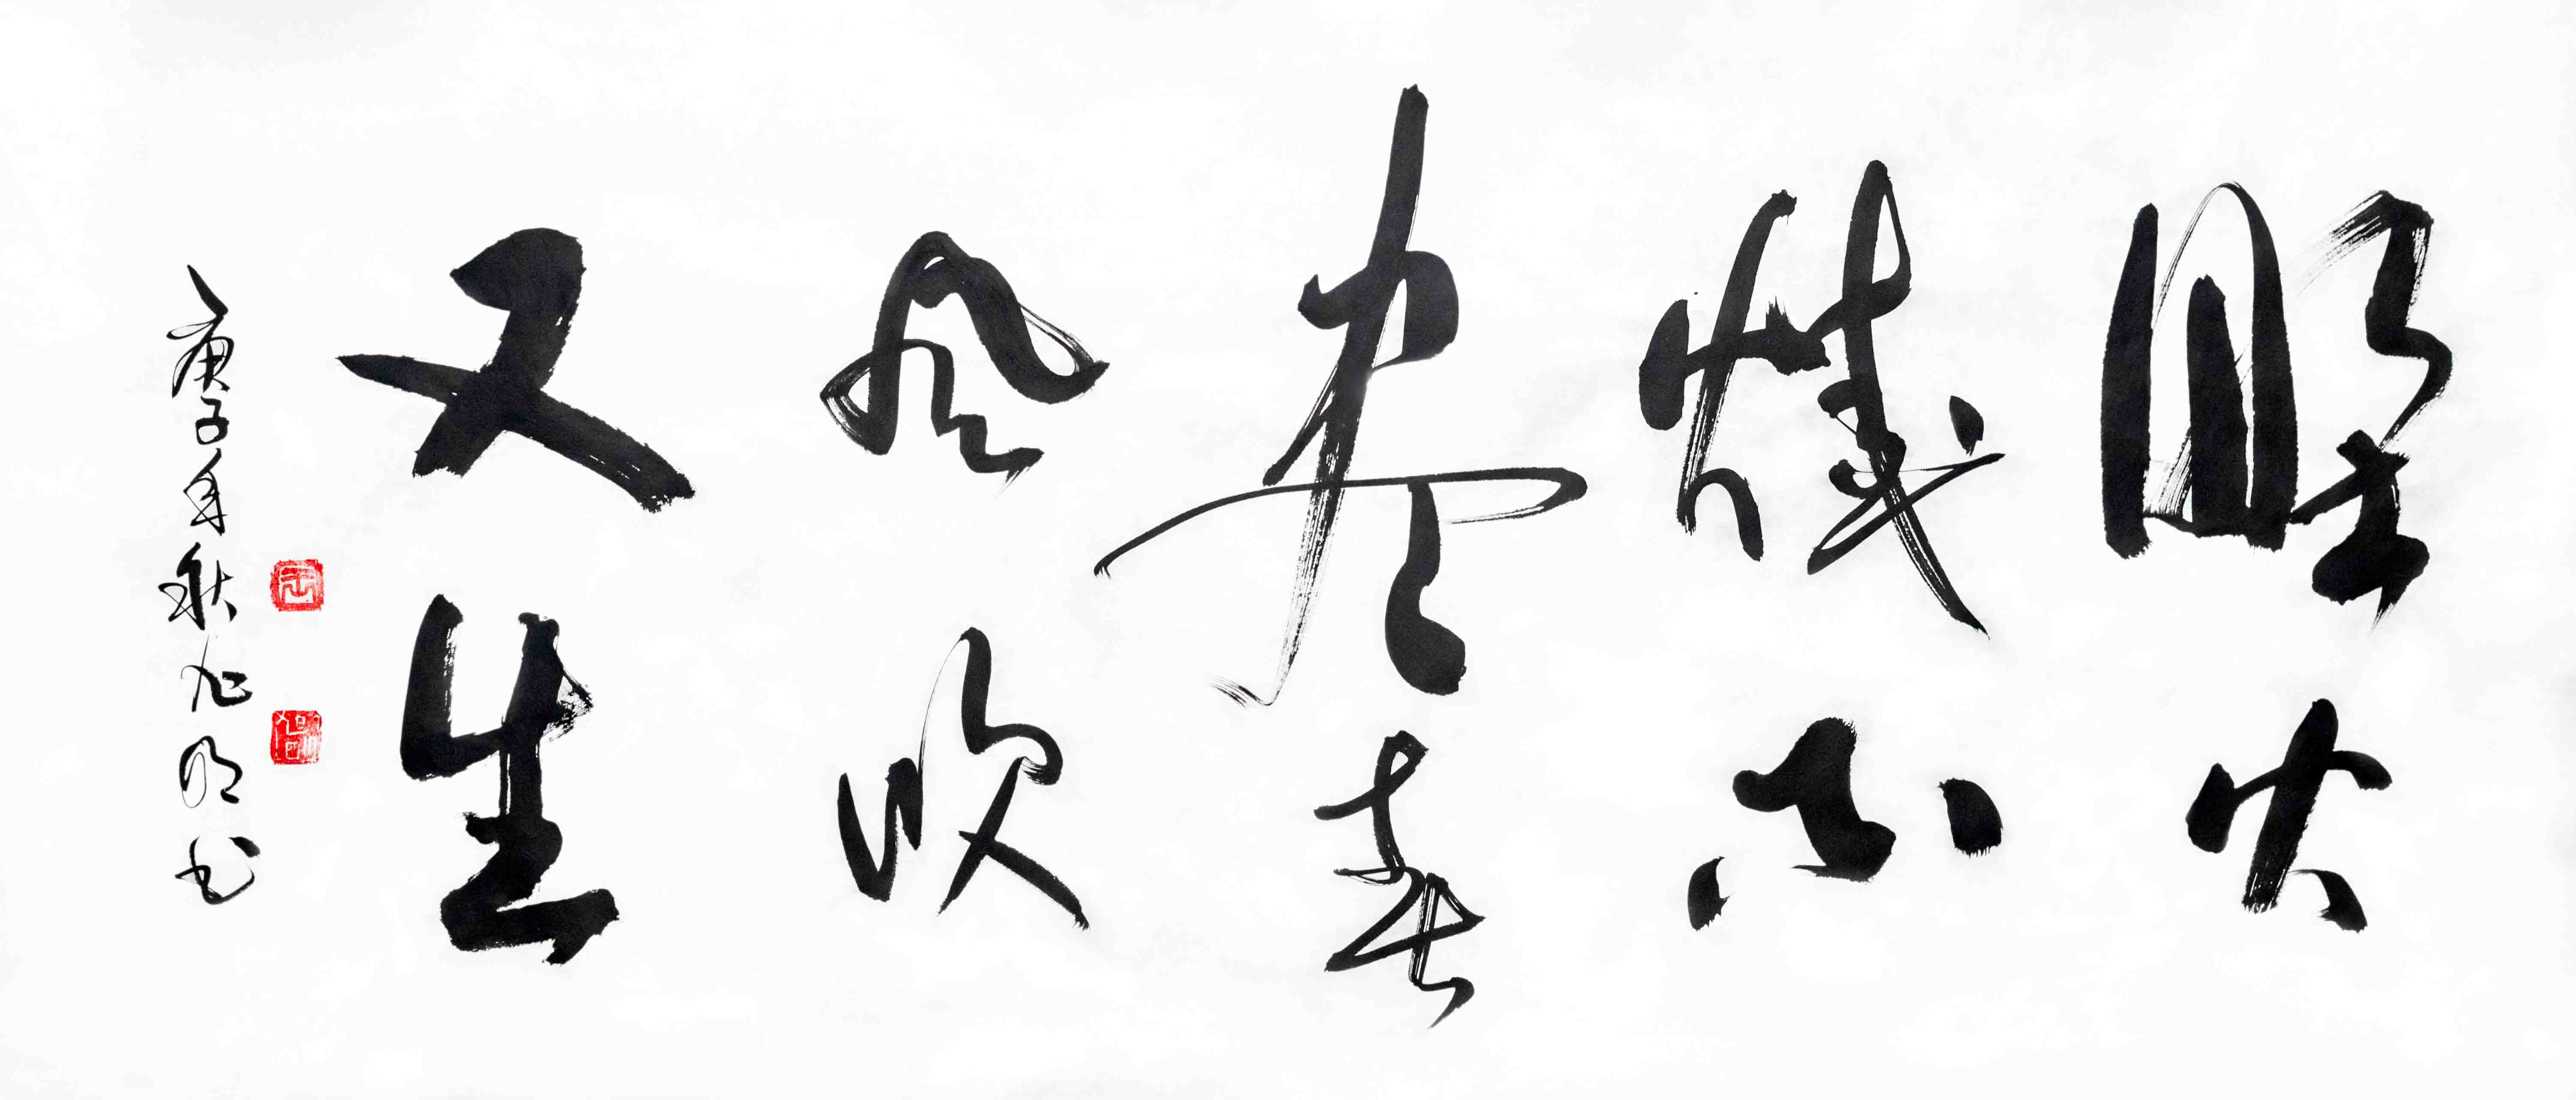 野火
烧不
尽春
风吹
又生
庚子年秋旭明书